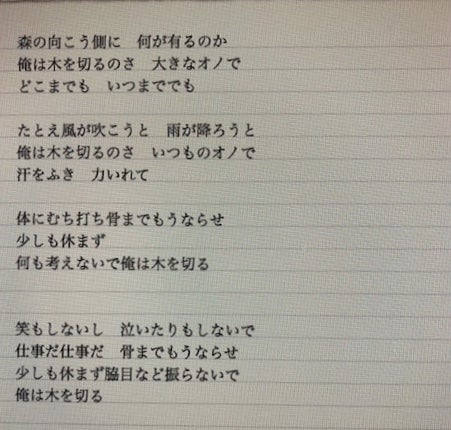 森の向こう側に　何が有るのか
俺は木を切るのさ　大きなオノで
どこまでも　いつまででも
たとえ風が吹こうと　雨が降ろうと
俺は木を切るのさ　いつものオノで
汗をふき　力いれて
体にむち打ち骨までもうならせ
少しも休まず
何も考えないで俺は木を切る
笑もしないし　泣いたりもしないで
仕事だ仕事だ　骨までもうならせ
少しも休まず脇目など振らないで
俺は木を切る